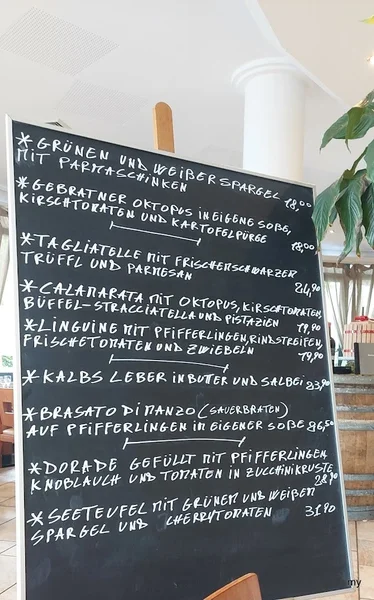 * GRÜNEN UND WEIßER SPARGEL 18,00
MIT PARMASCHINKEN
* GEBRATNER OKTOPUS IN EIGENE SOßE,
KIRSCHTOMATEN UND KARTOFELPÜRGE 18,00
* TAGLIATELLE MIT FRISCHEM SCHWARZER
TRÜFFL UND PARMESAN 24,90
* CALAMARATA MIT OKTOPUS, KIRSCHTOMATEN,
BÜFFEL-STRACCIATELLA UND PISTAZIEN 19,90
* LINGUINE MIT PFIFFERLINGEN, RINDSTREIFEN,
FRISCHETOMATEN UND ZWIEBELN 19,90
* KALBS LEBER IN BUTTER UND SALBEI 23,90
* BRASATO DI MANZO (SAUERBRATEN)
AUF PFIFFERLINGEN IN EIGENER SOßE 26,50
* DORADE GEFÜLLT MIT PFIFFERLINGEN,
KNOBLAUCH UND TOMATEN IN ZUCCHINIKRUSTE
28,90
* SEETEUFEL MIT GRÜNEM UND WEIßEM
SPARGEL UND CHERRYTOMATEN 31,90
my